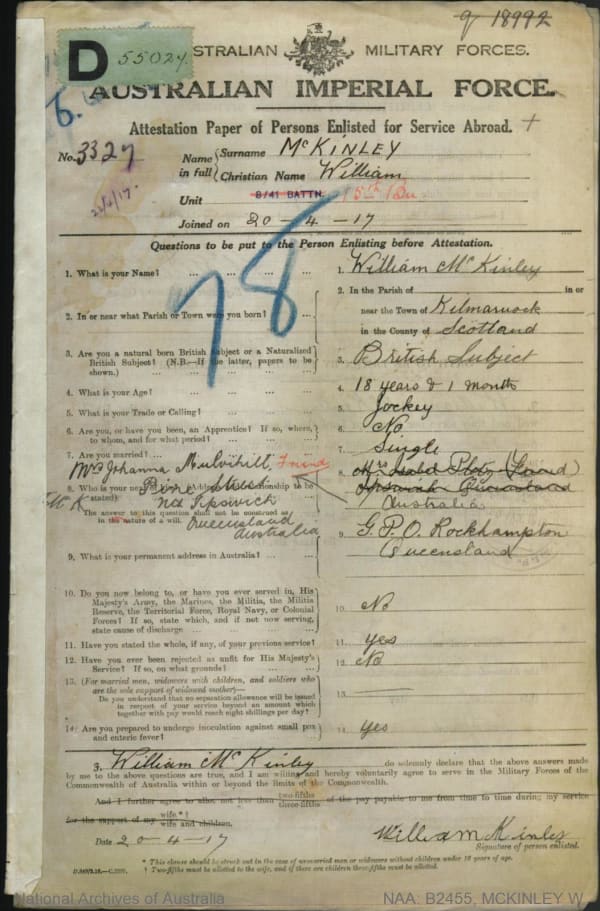 g 18992
D 55024
AUSTRALIAN MILITARY FORCES.
AUSTRALIAN IMPERIAL FORCE.
Attestation Paper of Persons Enlisted for Service Abroad.
No. 3327
Name in full { Surname McKINLEY
Christian Name William
Unit 8/41 BATTN. 15th Bn
Joined on 20-4-17
78
Questions to be put to the Person Enlisting before Attestation.
1. What is your Name? ... ... ... ...
1. William McKinley
2. In or near what Parish or Town were you born?
2. In the Parish of in or
near the Town of Kilmarnock
in the County of Scotland
3. Are you a natural born British Subject or a Naturalized
British Subject? (N.B.—If the latter, papers to be
shown.) ... ... ...
3. British Subject
4. What is your Age? ... ... ...
4. 18 years & 1 month
5. What is your Trade or Calling? ... ...
5. Jockey
6. Are you, or have you been, an Apprentice? If so, where,
to whom, and for what period? ... ...
6. No
7. Are you married? ...
7. Single
Mrs Johanna Mulvihill, Friend
8. Who is your next
stated)
Pine
nr Ipswich
Queensland
Australia
The answer to this question shall not be construed as
in the nature of a will.
8.
Ipswich Queensland
Australia
9. What is your permanent address in Australia? ...
9. G.P.O. Rockhampton
Queensland
10. Do you now belong to, or have you ever served in, His
Majesty's Army, the Marines, the Militia, the Militia
Reserve, the Territorial Force, Royal Navy, or Colonial
Forces? If so, state which, and if not now serving,
state cause of discharge ... ... ...
10. No
11. Have you stated the whole, if any, of your previous service?
11. Yes
12. Have you ever been rejected as unfit for His Majesty's
Service? If so, on what grounds? ... ...
12. No
13. (For married men, widowers with children, and soldiers who
are the sole support of widowed mother)—
Do you understand that no separation allowance will be issued
in respect of your service beyond an amount which
together with pay would reach eight shillings per day?
13. —
14. Are you prepared to undergo inoculation against small pox
and enteric fever? ... ...
14. Yes
I, William McKinley do solemnly declare that the above answers made
by me to the above questions are true, and I am willing and hereby voluntarily agree to serve in the Military Forces of the
Commonwealth of Australia within or beyond the limits of the Commonwealth.
And I further agree to allot not less than two-fifths three-fifths of the pay payable to me from time to time during my service
for the support of my wife.*†
wife and children.
Date 20-4-17
William McKinley
Signature of person enlisted.
* This clause should be struck out in the case of unmarried men or widowers without children under 18 years of age.
† Two-fifths must be allotted to the wife, and if there are children three-fifths must be allotted.
National Archives of Australia
NAA: B2455, MCKINLEY W